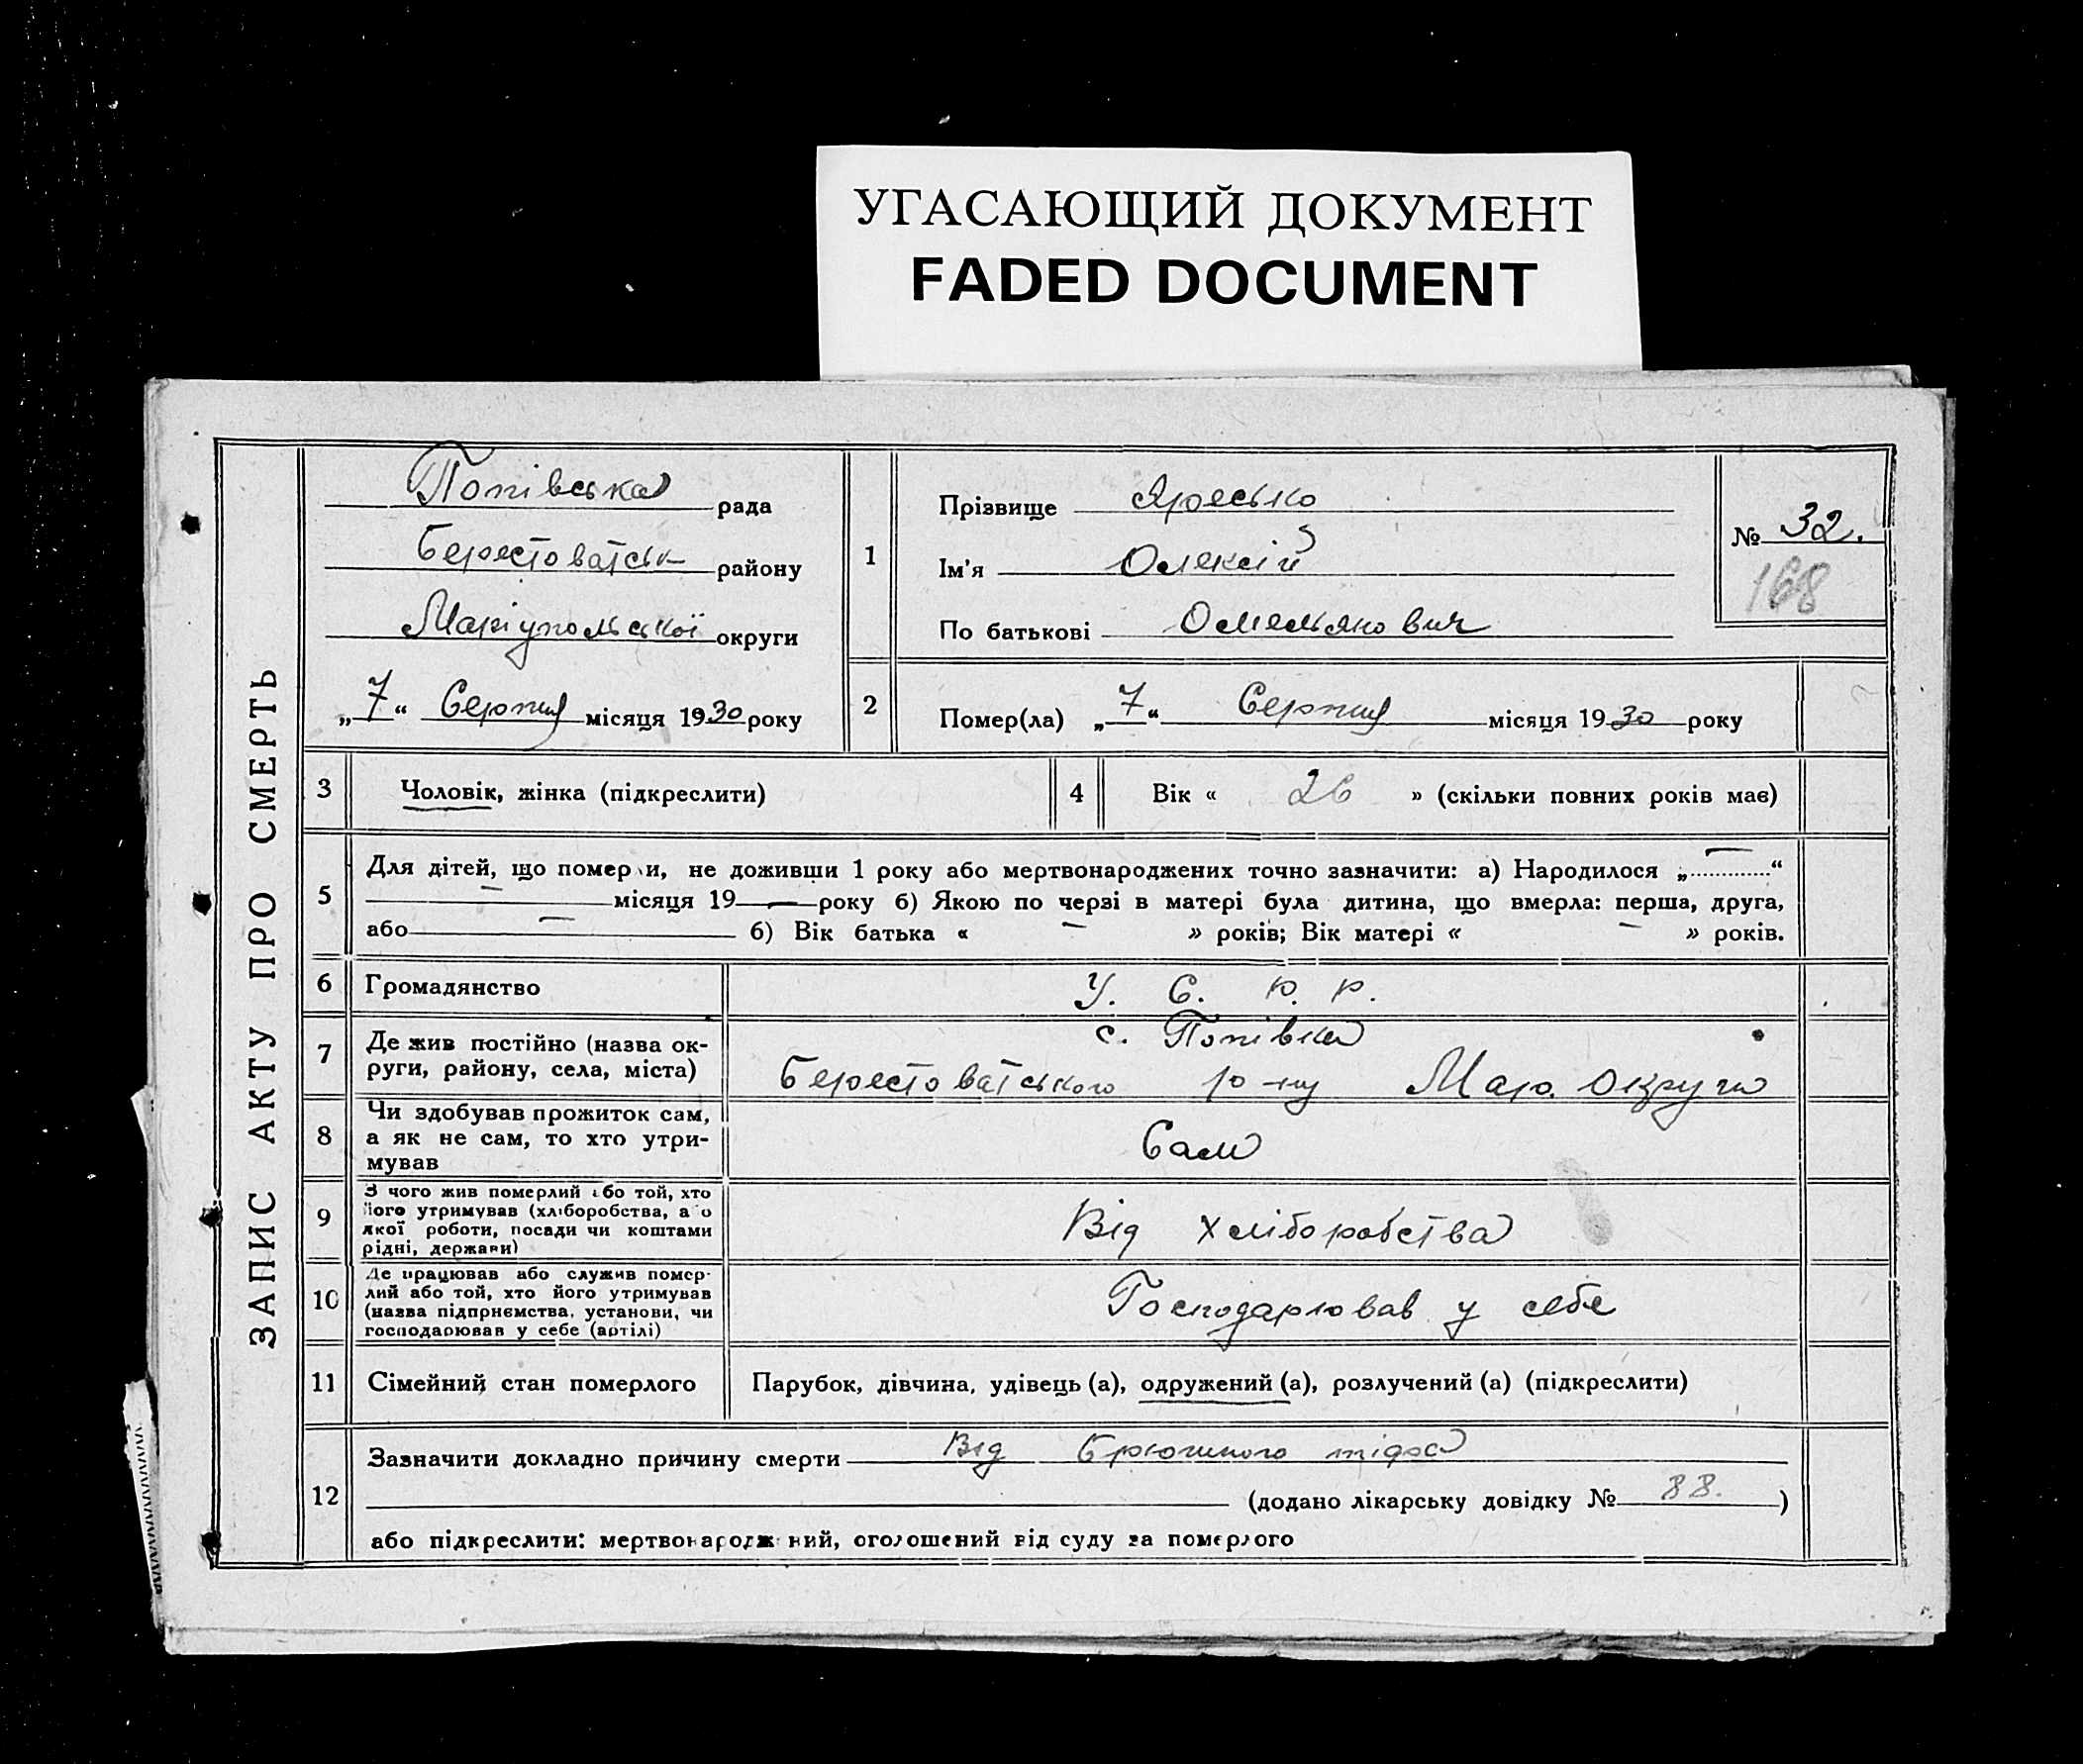 УГАСАЮЩИЙ ДОКУМЕНТ
FADED DOCUMENT
ЗАПИС АКТУ ПРО СМЕРТЬ
Попівська рада
Берестоватськ району
Маріупольської округи
„7“ Серпня місяця 1930 року
1
Прізвище Яресько
Ім'я Олексій
По батькові Омелянович
№ 32.
168
2 Помер(ла) „7“ Серпня місяця 1930 року
3 Чоловік, жінка (підкреслити)
4 Вік « 26 » (скільки повних років має)
5 Для дітей, що помер и, не доживши 1 року або мертвонароджених точно зазначити: а) Народилося „—“
— місяця 19— року б) Якою по черзі в матері була дитина, що вмерла: перша, друга,
або — б) Вік батька « — » років; Вік матері « — » років.
6 Громадянство У. С. Р. Р.
7 Де жив постійно (назва ок-
руги, району, села, міста)
с. Попівка
Берестоватського р-ну Мар. Округи
8 Чи здобував прожиток сам,
а як не сам, то хто утри-
мував
Сам
9 З чого жив померлий або той, хто
його утримував (хліборобства, або
якої роботи, посади чи коштами
рідні, держави)
Від хліборобства
10 Де працював або служив помер-
лий або той, хто його утримував
(назва підприємства, установи, чи
господарював у себе (артілі)
Господарював у себе
11 Сімейний стан померлого Парубок, дівчина, удівець (а), одружений (а), розлучений (а) (підкреслити)
12 Зазначити докладно причину смерти Від брюшного тіфа
(додано лікарську довідку № 88.)
або підкреслити: мертвонародж ний, оголошений від суду за померлого